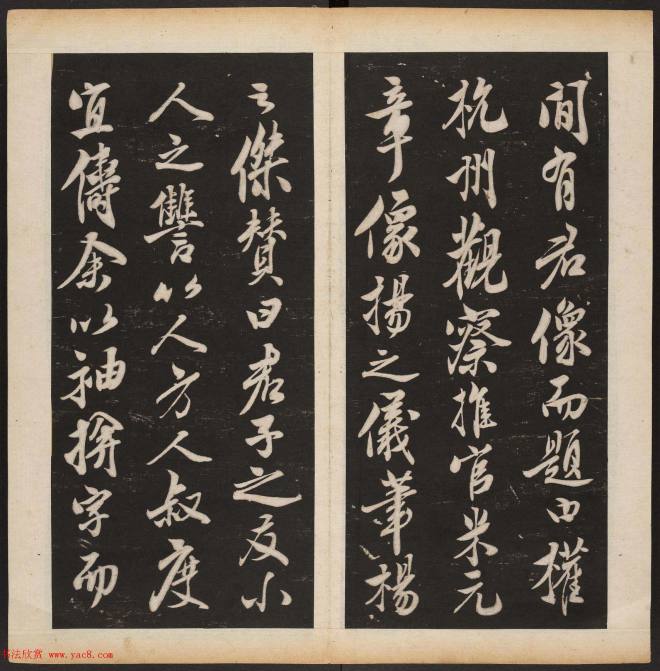 間有君像而題曰權
杭州觀察推官米元
章像揚之儀革楊
之傑贊曰君子之友小
人之讐以人方人叔度
宜儔余以袖拚字而
书法欣赏 www.yac8.com